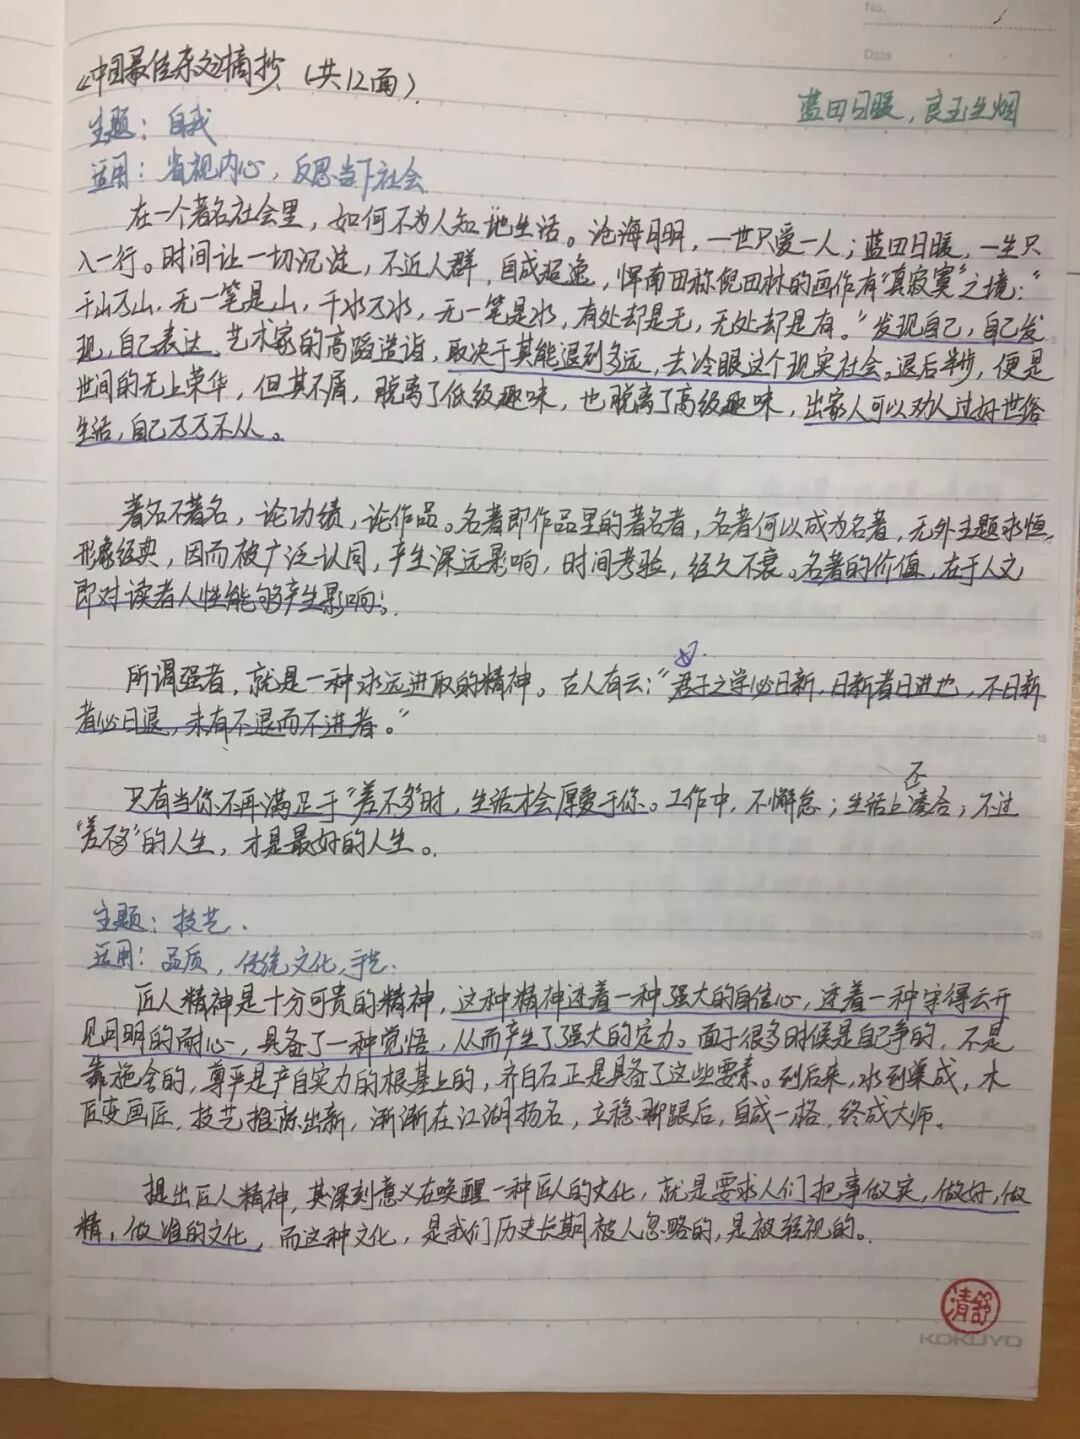 No.
Date
《中国最佳杂文》摘抄(共12面)
蓝田日暖,良玉生烟
主题:自我
适用:省视内心,反思当下社会
在一个著名社会里,如何不为人知地生活。沧海月明,一世只爱一人;蓝田日暖,一生只
入一行。时间让一切沉淀,不近人群,自成超逸,恽南田称倪田林的画作有“真寂寞”之境:“
千山万山,无一笔是山,千水万水,无一笔是水,有处却是无,无处却是有。”发现自己,自己发
现,自己表达,艺术家的高蹈造诣,取决于其能退到多远,去冷眼这个现实社会。退后半步,便是
世间的无上荣华,但其不屑,脱离了低级趣味,也脱离了高级趣味,出家人可以劝人过好世俗
生活,自己万万不从。
著名不著名,论功绩,论作品。名著即作品里的著名者,名著何以成为名著,无外主题永恒,
形象经典,因而被广泛认同,产生深远影响,时间考验,经久不衰。名著的价值,在于人文
即对读者人性能够产生影响;
所谓强者,就是一种永远进取的精神。古人有云:“君子之学必日新,日新者日进也,不日新
者必日退,未有不退而不进者。”
只有当你不再满足于“差不多”时,生活才会厚爱于你。工作中,不懈怠;生活上不凑合;不过
“差不多”的人生,才是最好的人生。
主题:技艺.
适用:品质,传统文化,手艺.
匠人精神是十分可贵的精神,这种精神透着一种强大的自信心,透着一种守得云开
见月明的耐心,具备了一种觉悟,从而产生了强大的定力。面子很多时候是自己争的,不是
靠施舍的,尊严是产自实力的根基上的,齐白石正是具备了这些要素。到后来,水到渠成,木
匠变画匠,技艺推陈出新,渐渐在江湖扬名,立稳脚跟后,自成一格,终成大师。
提出匠人精神,其深刻意义在唤醒一种匠人的文化,就是要求人们把事做实,做好,做
精,做准的文化,而这种文化,是我们历史长期被人忽略的,是被轻视的。
清舒
KOKUYO